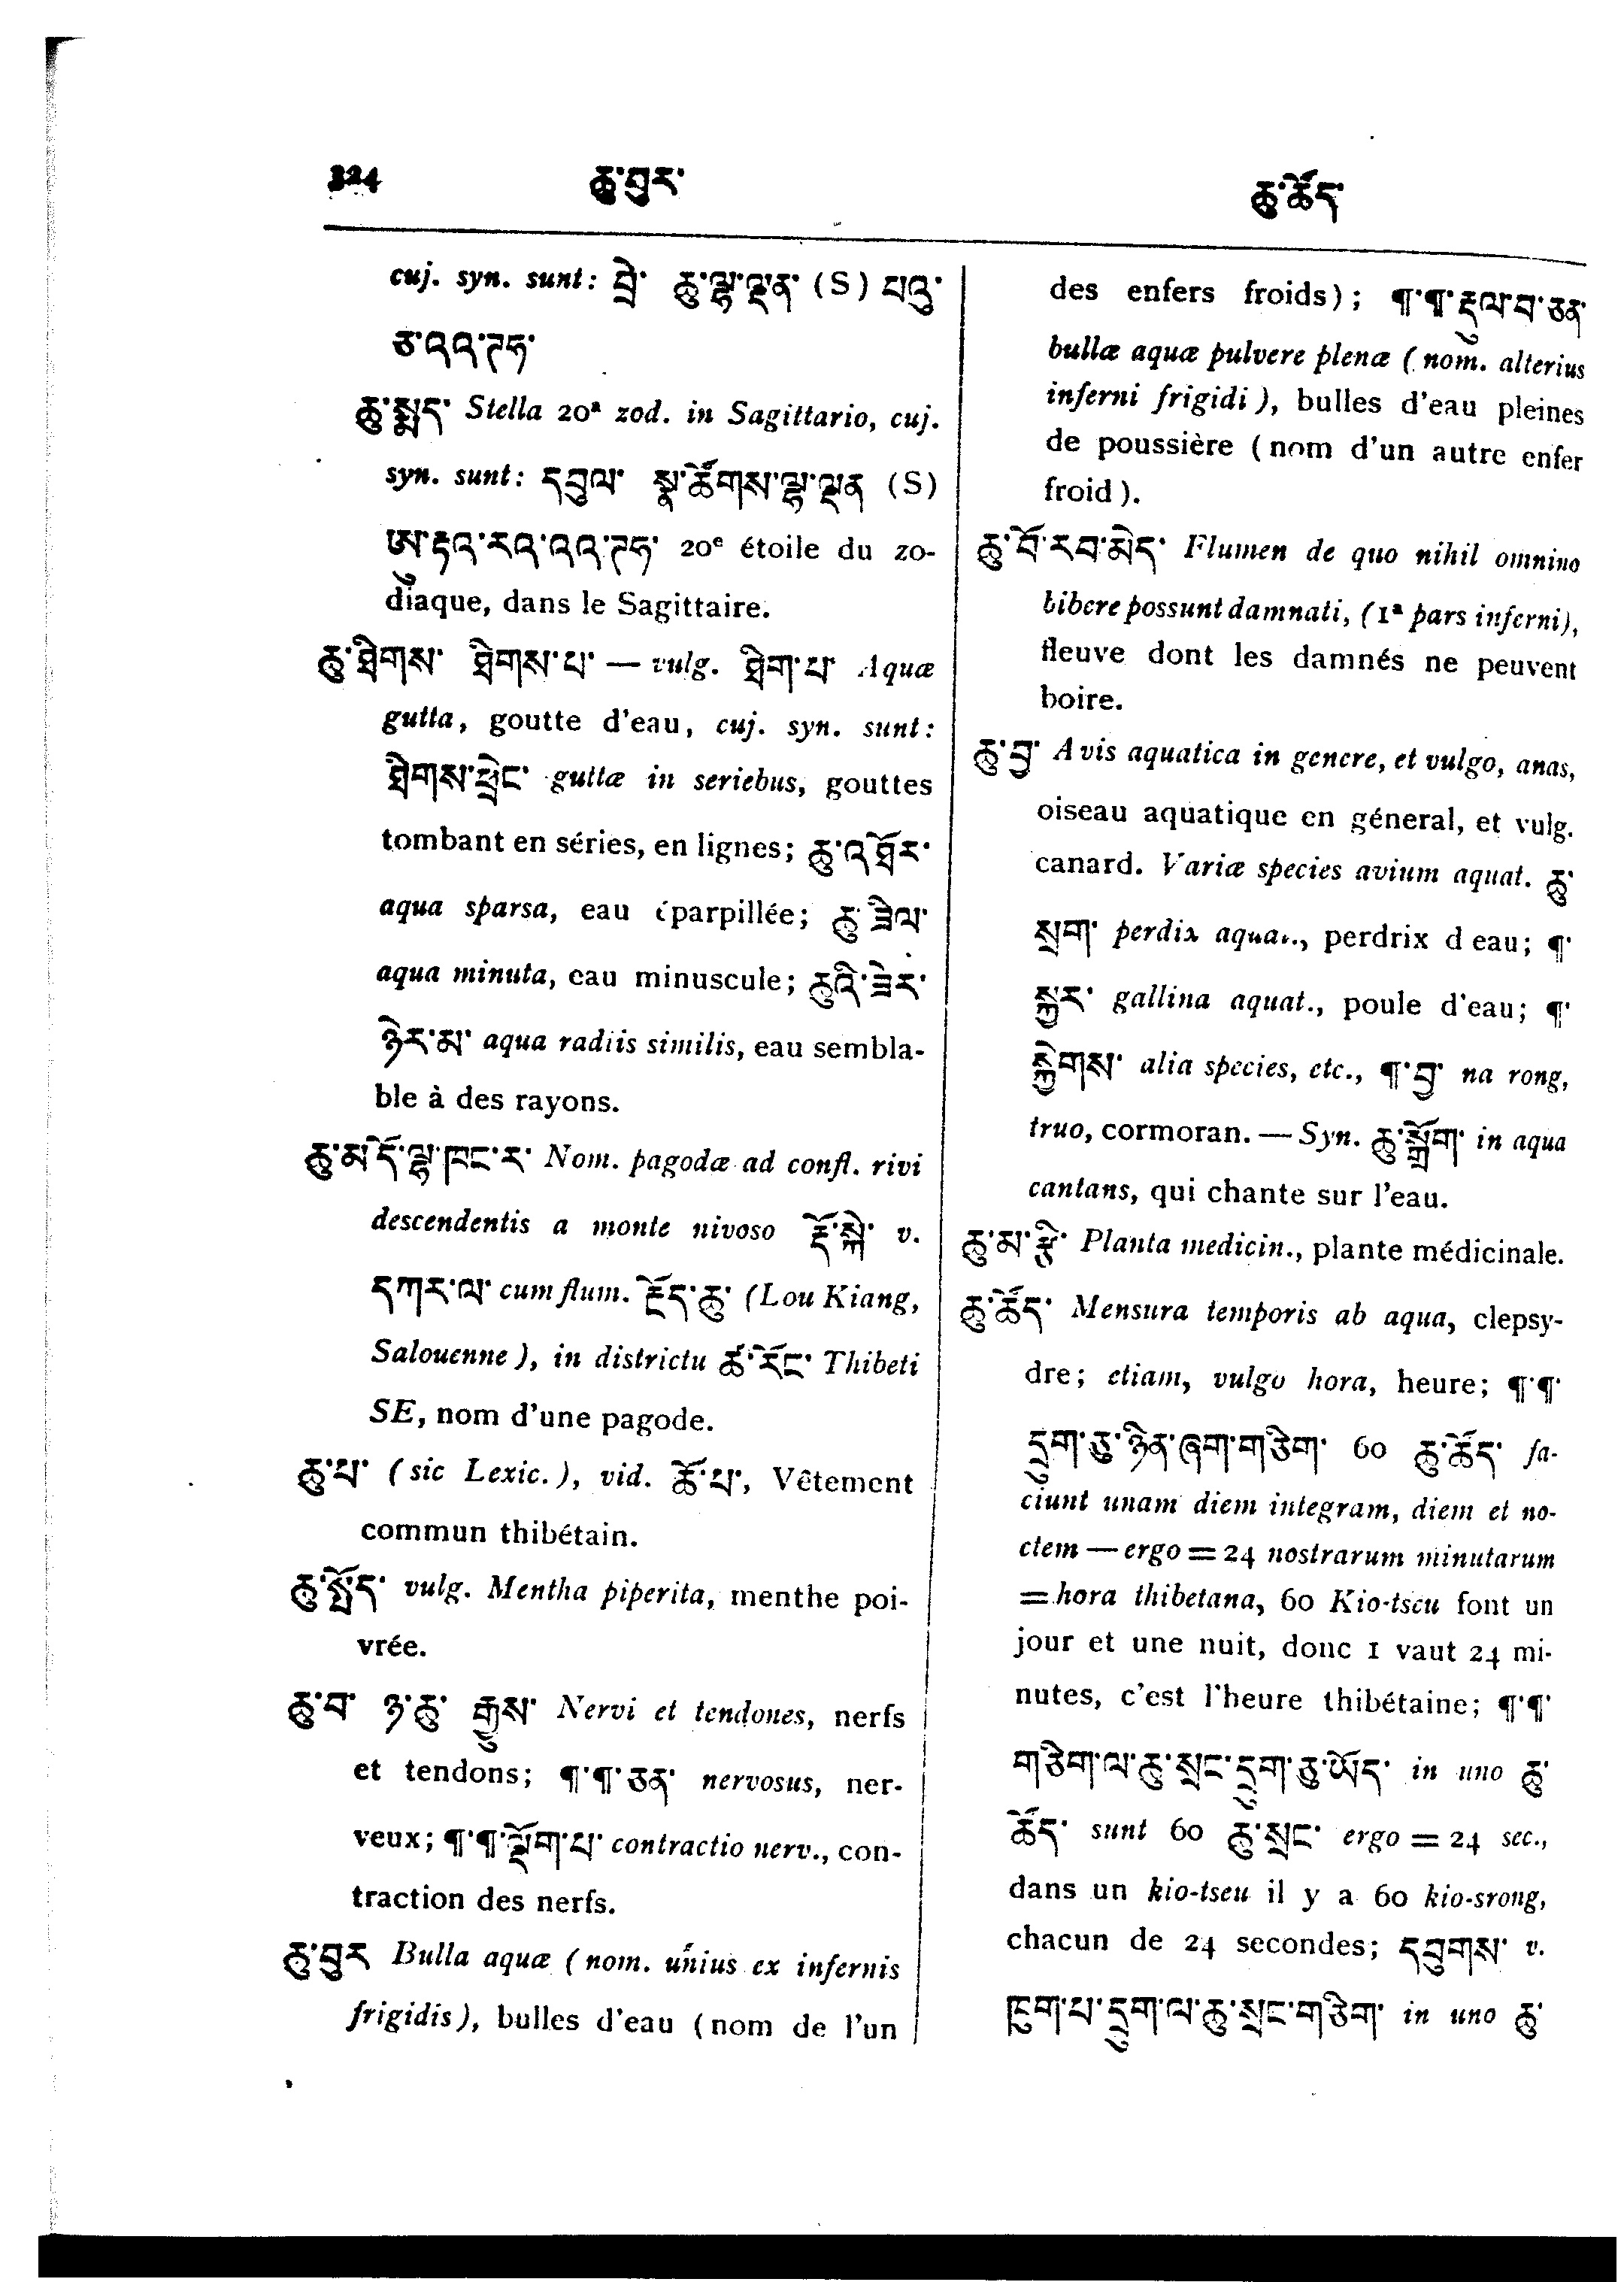 324 ཆུ་བུར་ ཆུ་ཚོད་
cuj. syn. sunt: བྲེ་ ཆུ་ལྷ་ལྡན་ (S) པའུ་
ཅ་འའ་ཌཧ་
ཆུ་སྨད་ Stella 20ª zod. in Sagittario, cuj.
syn. sunt: དབུལ་ སྣ་ཚོགས་ལྷ་ལྡན (S)
20ᵉ étoile du zo-
diaque, dans le Sagittaire.
ཆུ་ཐིགས་ ཐིགས་པ་ — vulg. ཐིག་པ་ Aquæ
gutta, goutte d'eau, cuj. syn. sunt:
ཐིགས་ཕྲེང་ guttæ in seriebus, gouttes
tombant en séries, en lignes; ཆུ་འཐོར་
aqua sparsa, eau éparpillée; ཆུ་ཟིལ་
aqua minuta, eau minuscule; ཆུའི་ཟེར་
ཉེར་མ་ aqua radiis similis, eau sembla-
ble à des rayons.
ཆུ་མདོ་ལྷ་ཁང་ར་ Nom. pagodæ ad confl. rivi
descendentis a monte nivoso རྡོ་སྐེ་ v.
དཀར་ལ་ cum flum. རྫོད་ཆུ་ (Lou Kiang,
Salouenne), in districtu ཚ་རོང་ Thibeti
SE, nom d'une pagode.
ཆུ་པ་ (sic Lexic.), vid. ཆོ་པ་, Vêtement
commun thibétain.
ཆུ་སྤོད་ vulg. Mentha piperita, menthe poi-
vrée.
ཆུ་བ་ ཉ་ཆུ་ རྒྱུས་ Nervi et tendones, nerfs
et tendons; ¶་¶་ཅན་ nervosus, ner-
veux; ¶་¶་ལྡོག་པ་ contractio nerv., con-
traction des nerfs.
ཆུ་བུར Bulla aquæ (nom. unius ex infernis
frigidis), bulles d'eau (nom de l'un
des enfers froids); ¶་¶་རྡུལ་བ་ཅན་
bullæ aquæ pulvere plenæ (nom. alterius
inferni frigidi), bulles d'eau pleines
de poussière (nom d'un autre enfer
froid).
ཆུ་བོ་རབ་མེད་ Flumen de quo nihil omnino
bibere possunt damnati, (1ª pars inferni),
fleuve dont les damnés ne peuvent
boire.
ཆུ་བྱ་ Avis aquatica in genere, et vulgo, anas,
oiseau aquatique en géneral, et vulg.
canard. Variæ species avium aquat. ཆུ་
སྲག་ perdix aquat., perdrix d eau; ¶་
སྐྱར་ gallina aquat., poule d'eau; ¶་
སྐྱེགས་ alia species, etc., ¶་བྱ་ na rong,
truo, cormoran. — Syn. ཆུ་སྒྲོག་ in aqua
cantans, qui chante sur l'eau.
ཆུ་མ་རྩི་ Planta medicin., plante médicinale.
ཆུ་ཚོད་ Mensura temporis ab aqua, clepsy-
dre; etiam, vulgo hora, heure; ¶་¶་
དྲུག་ཅུ་ཉིན་ཞག་གཅིག་ 60 ཆུ་ཚོད་ fa-
ciunt unam diem integram, diem et no-
ctem — ergo = 24 nostrarum minutarum
= hora thibetana, 60 Kio-tseu font un
jour et une nuit, donc 1 vaut 24 mi-
nutes, c'est l'heure thibétaine; ¶་¶་
གཅིག་ལ་ཆུ་སྲང་དྲུག་ཅུ་ཡོད་ in uno ཆུ་
ཚོད་ sunt 60 ཆུ་སྲང་ ergo = 24 sec.,
dans un kio-tseu il y a 60 kio-srong,
chacun de 24 secondes; དབུགས་ v.
ཁུག་པ་དྲུག་ལ་ཆུ་སྲང་གཅིག་ in uno ཆུ་